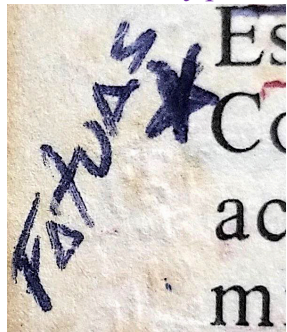 FATVAS
Es
Co
ac
mi